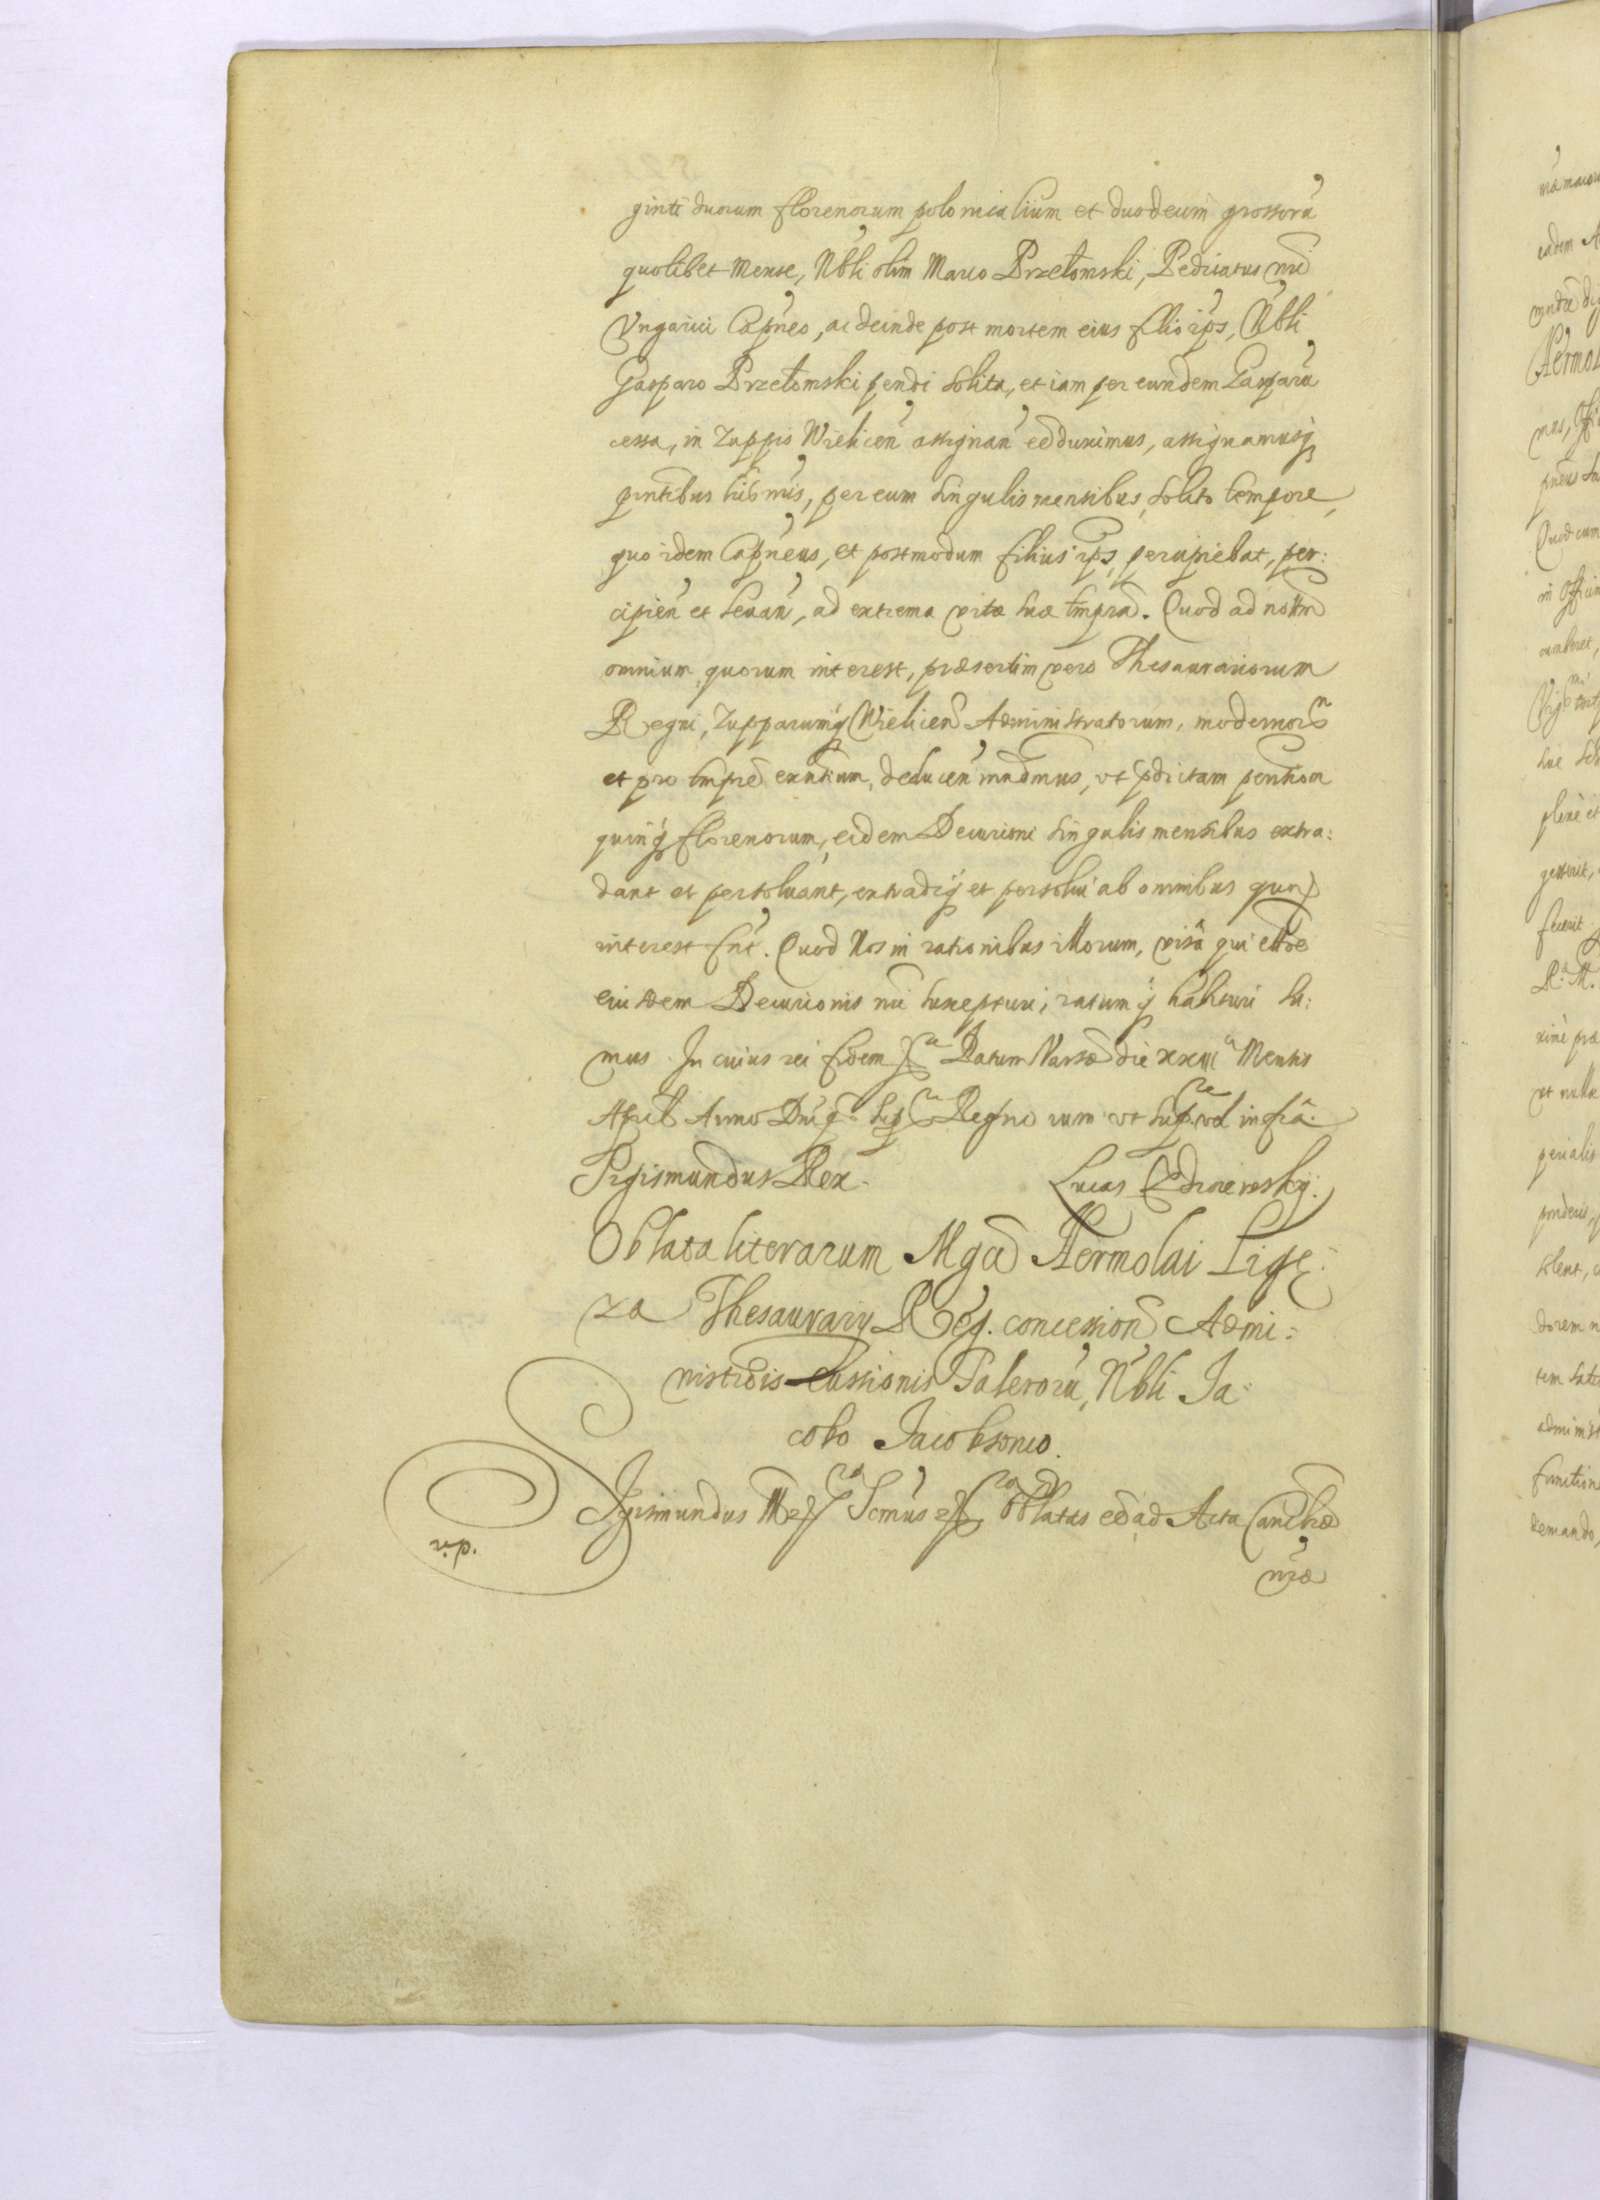 ginti duorum florenorum polonicalium et duodecim grossorũ
quolibet Mense, Nbli olim Marco Przełomski, Peditatus nri
Vngarici Capneo, ac deinde post mortem eius filio ips, Nbli
Gasparo Przełomski pendi solita, et iam per eundem Gasparũ
cessa, in Zuppis Wielicen assignan edduximus, assignamusq
pntibus lris nris, per eum singulis mensibus, solito tempore,
quo idem Capneus, et postmodum filius ips percipiebat, per:
cipien et leuan, ad extrema vitæ suæ tmpra. Quod ad nottm
omnium quorum interest, præsertim vero Thesaurariorum
Regni, Zupparumq Wielicen Administratorum, modernor
et pro tmpre exntium, deducen mndmus, vt pdictam pension
quinq florenorum, eidem Decurioni singulis mensibus extra:
dant et persoluant, extradiq et persolui ab omnibus quor
interest fnt. Quod Nos in rationibus illorum, visa qui
eiusdem Decurionis nri suscepturi, ratumq habituri su:
mus. In cuius rei fidem Datum Varsæ die Mensis
April Anno Dni Regno rum vt supra vel infrâ.
Sigismundus Rex. Lucas
Oblata literarum Mgci Hermolai Lige:
za Thesaurarij Reg. concession Admi:
nistrois cussionis Talerorũ, Nbli Ja:
cobo Jacobsonio.
Sigismundus Oblatas ee ad Acta Canclræ
nræ